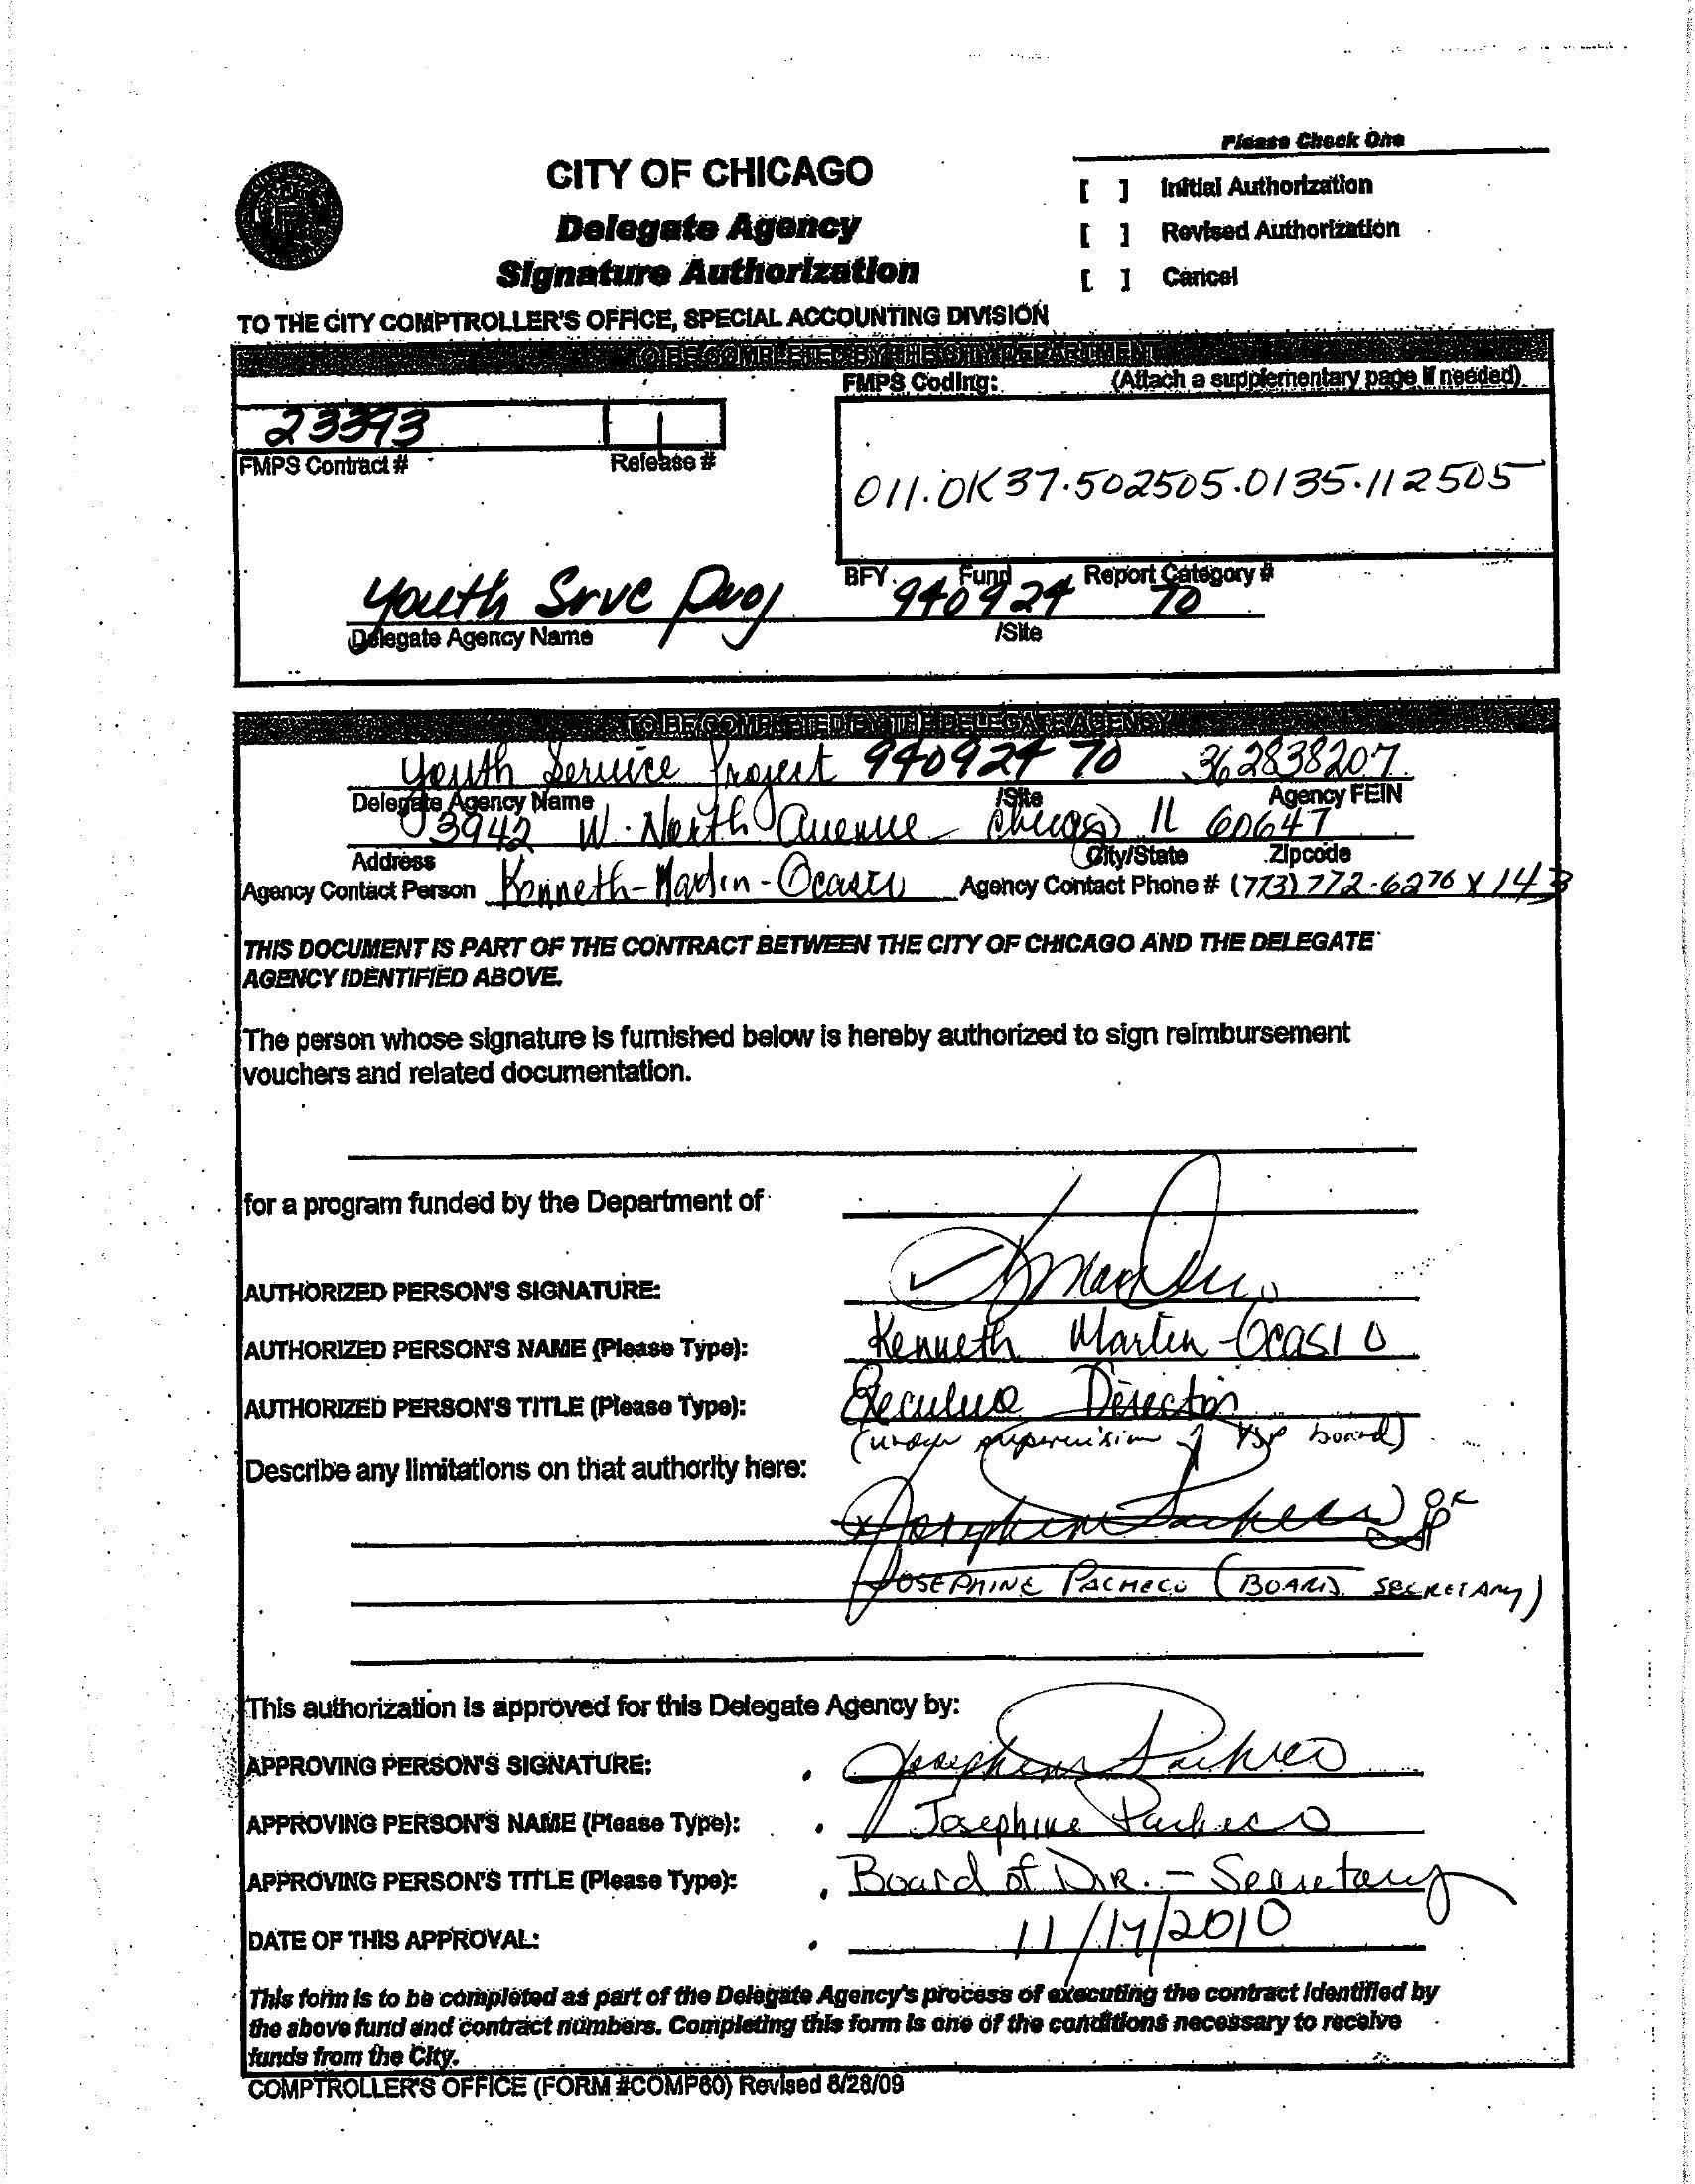 Please Check One
CITY OF CHICAGO
Delegate Agency
Signature Authorization
[ ] Initial Authorization
[ ] Revised Authorization
[ ] Cancel
TO THE CITY COMPTROLLER'S OFFICE, SPECIAL ACCOUNTING DIVISION
TO BE COMPLETED BY THE CITY DEPARTMENT
FMPS Coding: (Attach a supplementary page if needed)
23393
FMPS Contract # Release #
011.0K37.502505.0135.112505
BFY Fund Report Category #
Youth Srvc Proj 940924 70
Delegate Agency Name /Site
TO BE COMPLETED BY THE DELEGATE AGENCY
Youth Service Project 940924 70 362838207
Delegate Agency Name /Site Agency FEIN
3942 W. North Avenue Chicago IL 60647
Address City/State Zipcode
Agency Contact Person Kenneth-Martin-Ocasio Agency Contact Phone # (773) 772-6276 X 143
THIS DOCUMENT IS PART OF THE CONTRACT BETWEEN THE CITY OF CHICAGO AND THE DELEGATE
AGENCY IDENTIFIED ABOVE.
The person whose signature is furnished below is hereby authorized to sign reimbursement
vouchers and related documentation.
for a program funded by the Department of
AUTHORIZED PERSON'S SIGNATURE:
AUTHORIZED PERSON'S NAME (Please Type): Kenneth Martin-Ocasio
AUTHORIZED PERSON'S TITLE (Please Type): Executive Director
(under supervision of YSP board)
Describe any limitations on that authority here:
Josephine Pacheco
JOSEPHINE PACHECO (BOARD SECRETARY)
This authorization is approved for this Delegate Agency by:
APPROVING PERSON'S SIGNATURE: Josephine Pacheco
APPROVING PERSON'S NAME (Please Type): Josephine Pacheco
APPROVING PERSON'S TITLE (Please Type): Board of DIR. - Secretary
DATE OF THIS APPROVAL: 11/17/2010
This form is to be completed as part of the Delegate Agency's process of executing the contract identified by
the above fund and contract numbers. Completing this form is one of the conditions necessary to receive
funds from the City.
COMPTROLLER'S OFFICE (FORM #COMP60) Revised 8/28/09